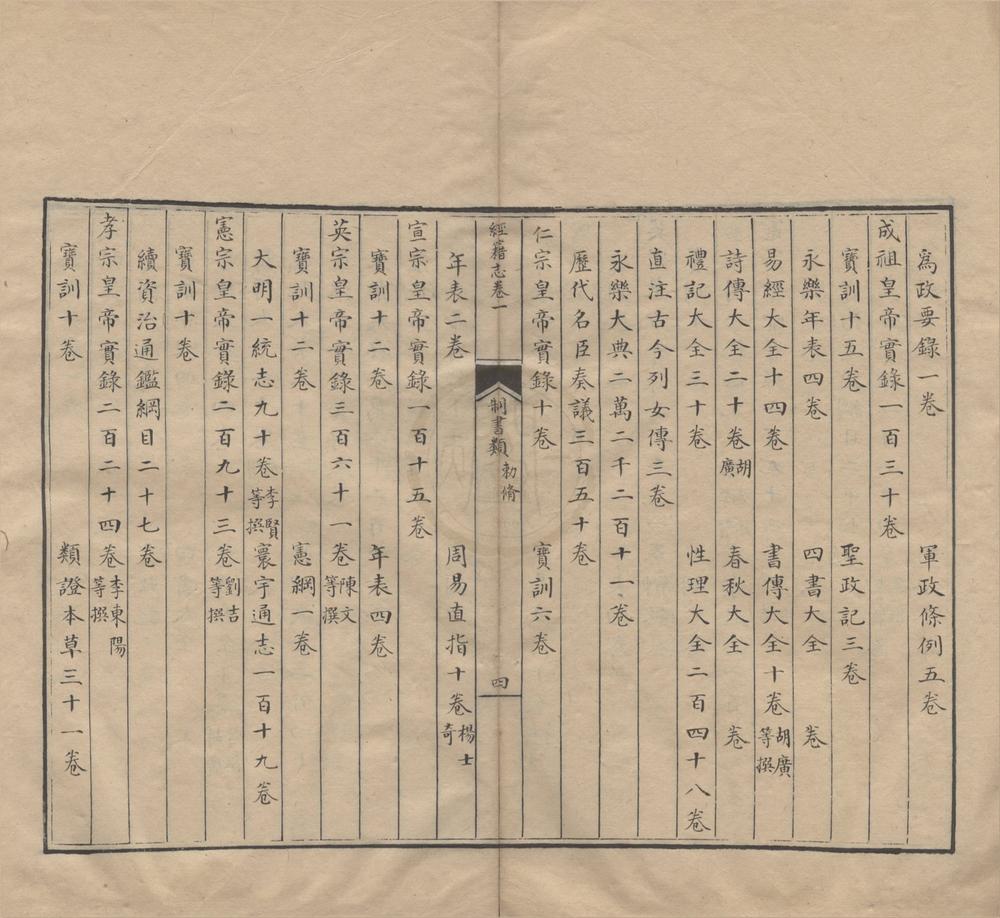 爲政要錄一卷　軍政條例五卷
成祖皇帝實錄一百三十卷
寶訓十五卷　聖政記三卷
永樂年表四卷　四書大全　卷
易經大全十四卷　書傳大全十卷胡廣等撰
詩傳大全二十卷胡廣　春秋大全　卷
禮記大全三十卷　性理大全二百四十八卷
直注古今列女傳三卷
永樂大典二萬二千二百十一卷
歷代名臣奏議三百五十卷
仁宗皇帝實錄十卷　寶訓六卷
經籍志卷一　制書類　勅脩　四
年表二卷　周易直指十卷楊士奇
宣宗皇帝實錄一百十五卷
寶訓十二卷　年表四卷
英宗皇帝實錄三百六十一卷陳文等撰
寶訓十二卷　憲綱一卷
大明一統志九十卷李賢等撰寰宇通志一百十九卷
憲宗皇帝實錄二百九十三卷劉吉等撰
寶訓十卷
續資治通鑑綱目二十七卷
孝宗皇帝實錄二百二十四卷李東陽等撰
寶訓十卷　類證本草三十一卷